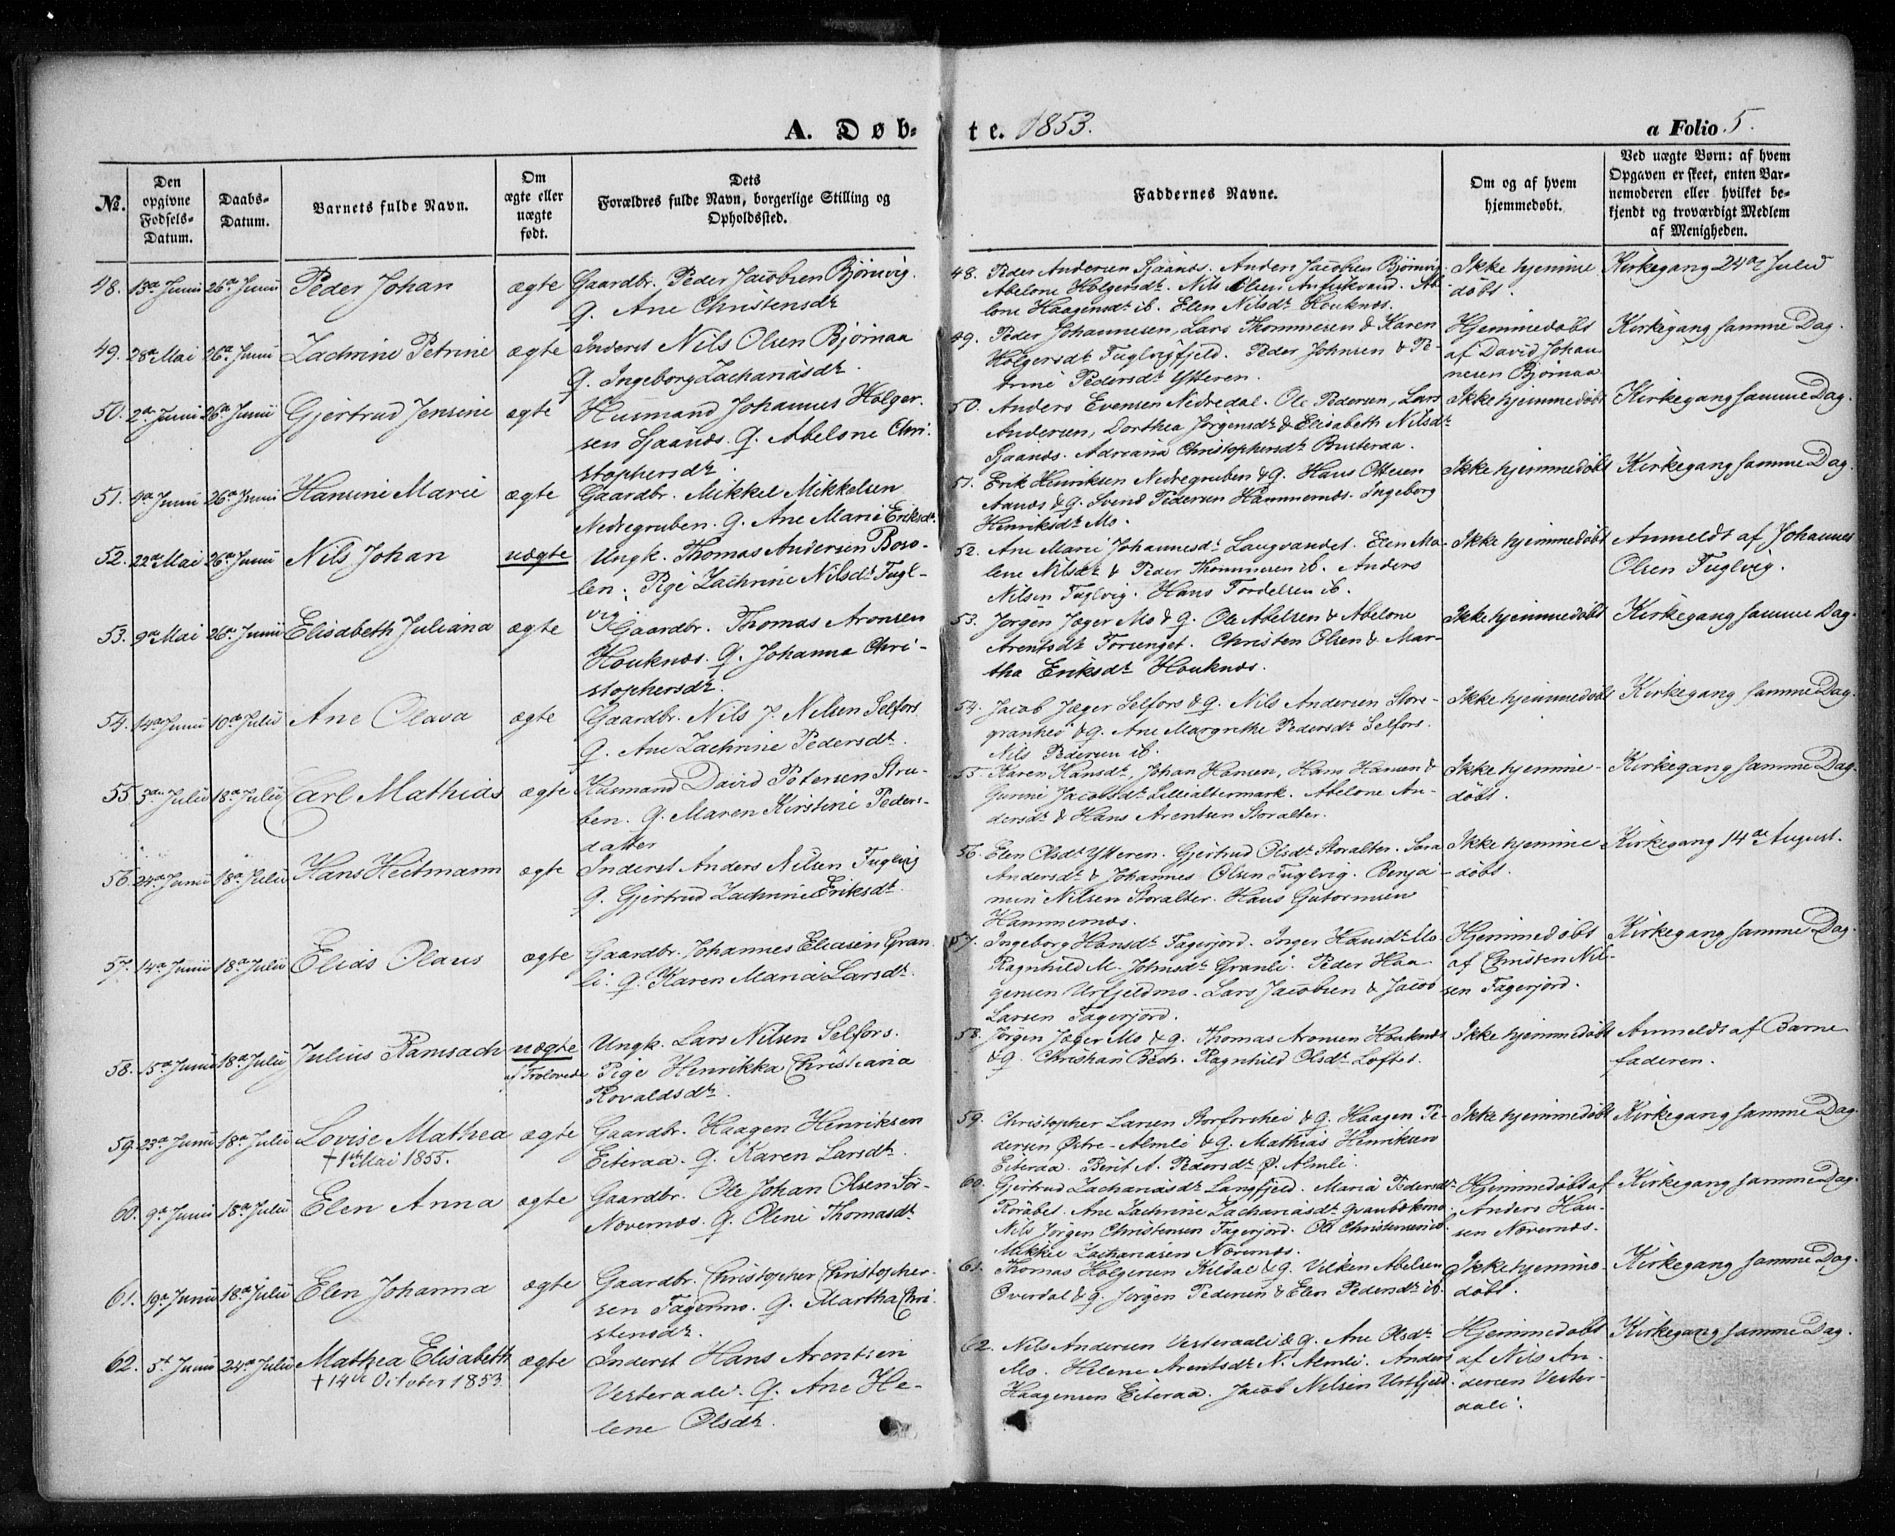 A. Døb-
te. 1853.
a Folio 5.
№.
Den
opgivne
Fødsels-
Datum.
Daabs-
Datum.
Barnets fulde Navn.
Om
ægte eller
uægte
født.
Dets
Forældres fulde Navn, borgerlige Stilling og
Opholdssted.
Faddernes Navne.
Om og af hvem
hjemmedøbt.
Ved uægte Børn: af hvem
Opgaven er skeet, enten Bar-
nemoderen eller hvilket be-
kjendt og troværdigt Medlem
af Menigheden.
48. 13de Junii 26de Junii Peder Johan ægte
Gaardbr. Peder Jacobsen Bjørnvig.
Q. Ane Christensdr
48. Peder Andersen Sjaanæs. Anders Jacobsen Bjørnvig.
Abelone Holgersdr. Nils Olsen
lone Haagensdr ib. Elen Nilsdr Houknæs.
Ikke hjemme
døbt.
Kirkegang 24de Julii
49. 28de Mai 26de Junii Zachrine Petrine ægte
Inderst Nils Olsen Bjørnaa
Q. Ingeborg Zachariasdr
49. Peder Johannesen, Lars Thommesen & Karen
Holgersdr Fuglvigfjeld. Peder Johnsen & Pe-
trine Pedersdr Ytteren.
Hjemmedøbt
af David Johan
nesen Bjørnaa
Kirkegang samme Dag.
50. 2de Junii 26de Junii Gjertrud Jensine ægte
Husmand Johannes Holger.
sen Sjaanæs. Q. Abelone Chri.
stophersdr.
50. Anders Evensen Nedredal. Ole Pedersen, Lars
Andersen, Dorthea Jørgensdr & Elisabeth Nilsdr
Sjaanæs. Adriana Christophersdr Brusteraa.
Ikke hjemmedøbt
Kirkegang samme Dag.
51. 4de Junii 26de Junii Hansine Marie ægte
Gaardbr. Mikkel Mikkelsen
Nedregruben. Q. Ane Marie Eriksdr.
51. Erik Henriksen Nedregruben & Q. Hans Ottesen
Aanæs & Q. Svend Pedersen Hammernæs. Ingeborg
Henriksdr Mo.
Ikke hjemmedøbt
Kirkegang samme Dag.
52. 22de Mai 26de Junii Nils Johan uægte
Ungk. Thomas Andersen Boso-
len. Pige Zachrine Nilsdr Fugl-
vig
52. Ane Marie Johannesdr Langvandet. Elen Ma-
lene Nilsdr & Peder Thommesen ib. Anders
Nilsen Fuglvig. Hans Tordelsen ib.
Ikke hjemmedøbt
Anmeldt af Johannes
Olsen Fuglvig.
53. 9de Mai 26de Junii Elisabeth Juliana ægte
Gaardbr. Thomas Aronsen
Houknæs. Q. Johanna Chri-
stophersdr.
53. Jørgen Jæger Mo & Q. Ole Abelsen & Abelone
Arentsdr Forsenget. Christen Olsen & Mar-
tha Eriksdr Houknæs.
Ikke hjemmedøbt
Kirkegang samme Dag.
54. 14de Junii 10de Julii Ane Olava ægte
Gaardbr. Nils J. Nilsen Selfors
Q. Ane Zachrine Pedersdr.
54. Jacob Jæger Selfors & Q. Nils Andersen Store-
granhei & Q. Ane Margrethe Pedersdr Selfors.
Nils Pedersen ib.
Ikke hjemmedøbt
Kirkegang samme Dag.
55. 5de Julii 18de Julii Carl Mathias ægte
Husmand David Petersen Stru-
ben. Q. Maren Kirstine Peders-
datter
55. Karen Hansdr, Johan Hansen, Hans Hansen &
Gurine Jacobsdr Lillealtermark. Abelone An-
dersdr & Hans Arentsen Storalter.
Ikke hjemme-
døbt.
Kirkegang samme Dag.
56. 24de Junii 18de Julii Hans Heitmann ægte
Inderst Anders Nilsen Fuglvig
Q. Gjertrud Zachrine Eriksdr.
56. Elen Olsdr Ytteren. Gjertrud Olsdr Storalter. Sara
Andersdr & Johannes Olsen Fuglvig. Benja-
min Nilsen Storalter. Hans Gutormsen
Hammernæs.
Ikke hjemme
døbt.
Kirkegang 14de August.
57. 14de Junii 18de Julii Elias Olaus ægte
Gaardbr. Johannes Eliasen Gran
li. Q. Karen Maria Larsdr.
57. Ingeborg Hansdr Fagerjord. Inger Hansdr Mo
Ragnhild M. Johnsdr Granli. Peder Haa-
gensen Urtfjeldmo. Lars Jacobsen & Jacob
Larsen Fagerjord.
Hjemmedøbt
af Christen Nil-
sen Fagerjord.
Kirkegang samme Dag.
58. 15de Junii 18de Julii Julius Ramsach uægte
f Trolovede
Ungk. Lars Nilsen Selfors.
Pige Henrikka Christiana
Rovaldsdr.
58. Jørgen Jæger Mo & Q. Thomas Aronsen Houknæs
& Q. Christian Bech. Ragnhild Olsdr Loftet.
Ikke hjemmedøbt
Anmeldt af Barne
faderen.
59. 23de Junii 18de Julii Lovise Mathea ægte
† 1ste Mai 1855.
Gaardbr. Haagen Henriksen
Eiteraa. Q. Karen Larsdr.
59. Christopher Larsen Storforshei & Q. Haagen Pe-
dersen Østre-Almli & Q. Mathias Henriksen
Eiteraa. Berit A. Pedersdr Ø. Almli.
Ikke hjemmedøbt
Kirkegang samme Dag.
60. 9de Junii 18de Julii Elen Anna ægte
Gaardbr. Ole Johan Olsen Sør-
Nævernæs. Q. Oline Thomasdr
60. Gjertrud Zachariasdr Langfjeld. Maria Pedersdr
Røråbel. Ane Zachrine Zachariasdr Grønbækmo
Nils Jørgen Christensen Fagerjord. Ole Christensen ib.
Mikkel Zachariasen Nævernæs.
Hjemmedøbt af
Anders Han-
sen Nævernæs.
Kirkegang samme Dag.
61. 19de Junii 18de Julii Elen Johanna ægte
Gaardbr. Christopher Christopher-
sen Fagermo. Q. Martha Chri
stensdr.
61. Thomas Holgersen Kildal & Q. Velken Abelsen
Overdal & Q. Jørgen Pedersen & Elen Pedersdr ib.
Ikke hjemme-
døbt.
Kirkegang samme Dag.
62. 5te Junii 24de Julii Mathea Elisabeth ægte
† 14de October 1853.
Inderst Hans Arentsen
Vesteraali. Q. Ane He-
lene Olsdr.
62. Nils Andersen Vesteraali & Q. Ane Olsdr
Mo. Helene Arentsdr N. Almli. Anders
Haagensen Eiteraa. Jacob Nilsen Urtfjeld.
Hjemmedøbt
af Nils An-
dersen Vester-
aali.
Kirkegang samme Dag.